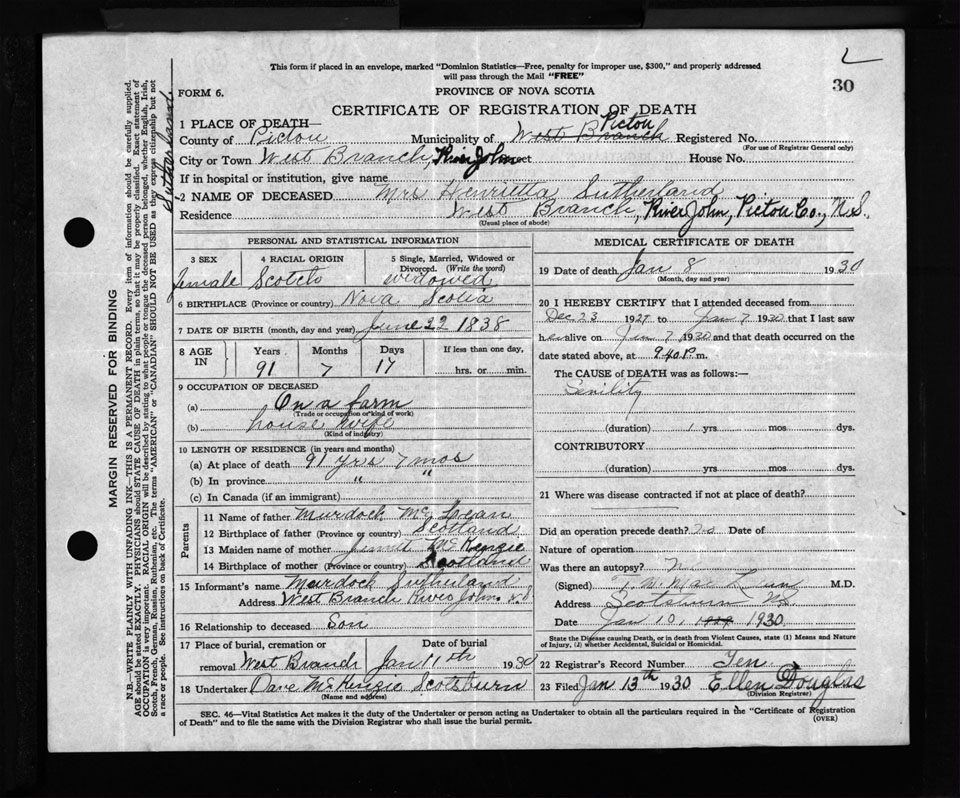 L
30
This form if placed in an envelope, marked "Dominion Statistics—Free, penalty for improper use, $300," and properly addressed
will pass through the Mail "FREE"
FORM 6.
PROVINCE OF NOVA SCOTIA
CERTIFICATE OF REGISTRATION OF DEATH
1 PLACE OF DEATH—
County of Pictou Municipality of West Branch Pictou Registered No.
(For use of Registrar General only)
City or Town West Branch, River John House No.
If in hospital or institution, give name
2 NAME OF DECEASED Mrs Henrietta Sutherland
Residence West Branch, River John, Pictou Co., N.S.
(Usual place of abode)
PERSONAL AND STATISTICAL INFORMATION
3 SEX 4 RACIAL ORIGIN 5 Single, Married, Widowed or
Divorced. (Write the word)
female Scotch widowed
6 BIRTHPLACE (Province or country) Nova Scotia
7 DATE OF BIRTH (month, day and year) June 22 1838
8 AGE IN Years Months Days If less than one day,
91 7 17 hrs. or min.
9 OCCUPATION OF DECEASED
(a) On a farm
(Trade or occupation or kind of work)
(b) house wife
(Kind of industry)
10 LENGTH OF RESIDENCE (in years and months)
(a) At place of death 91 yrs 7 mos
(b) In province " "
(c) In Canada (if an immigrant)
Parents
11 Name of father Murdock McLean
12 Birthplace of father (Province or country) Scotland
13 Maiden name of mother McKenzie
14 Birthplace of mother (Province or country) Scotland
15 Informant's name Murdock Sutherland
Address West Branch River John N.S
16 Relationship to deceased Son
17 Place of burial, cremation or Date of burial
removal West Branch Jan 11th 1930
18 Undertaker Dave McKenzie Scotsburn
(Name and address)
MEDICAL CERTIFICATE OF DEATH
19 Date of death Jan 8 1930
(Month, day and year)
20 I HEREBY CERTIFY that I attended deceased from
Dec 23 1929 to Jan 7 1930 that I last saw
her alive on Jan 7 1930 and that death occurred on the
date stated above, at 9.40 P.m.
The CAUSE of DEATH was as follows:—
Senility
(duration) 1 yrs mos dys.
CONTRIBUTORY
(duration) yrs. mos. dys.
21 Where was disease contracted if not at place of death?
Did an operation precede death? no Date of
Nature of operation
Was there an autopsy? No
(Signed) M.D.
Address Scotsburn NS
Date Jan 10, 1929 1930
State the Disease causing Death, or in death from Violent Causes, state (1) Means and Nature
of Injury, (2) whether Accidental, Suicidal or Homicidal.
22 Registrar's Record Number Ten
23 Filed Jan 13th 1930 Ellen Douglas
(Division Registrar)
SEC. 46—Vital Statistics Act makes it the duty of the Undertaker or person acting as Undertaker to obtain all the particulars required in the "Certificate of Registration
of Death" and to file the same with the Division Registrar who shall issue the burial permit.
(OVER)
MARGIN RESERVED FOR BINDING
N.B.—WRITE PLAINLY WITH UNFADING INK—THIS IS A PERMANENT RECORD. Every item of information should be carefully supplied.
AGE should be stated EXACTLY. PHYSICIANS should STATE CAUSE OF DEATH in plain terms, so that it may be properly classified. Exact statement of
OCCUPATION is very important. RACIAL ORIGIN will be described by stating to what people or tongue the deceased person belonged, whether English, Irish,
Scotch, French, German, Russian, Ruthenian, etc. The terms "AMERICAN" or "CANADIAN" SHOULD NOT BE USED as they express citizenship but not
a race or people. See instructions on back of Certificate.
Sutherland